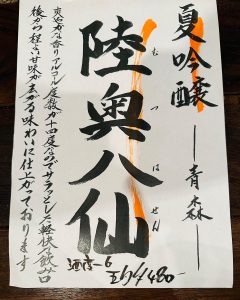 夏吟醸 ―青森―
陸奥八仙
むつはっせん
爽やかな香りアルコール度数が十四度なのでサラッとした軽快な飲み口
後から程よい甘味が広がる味わいに仕上がております
酒度-6